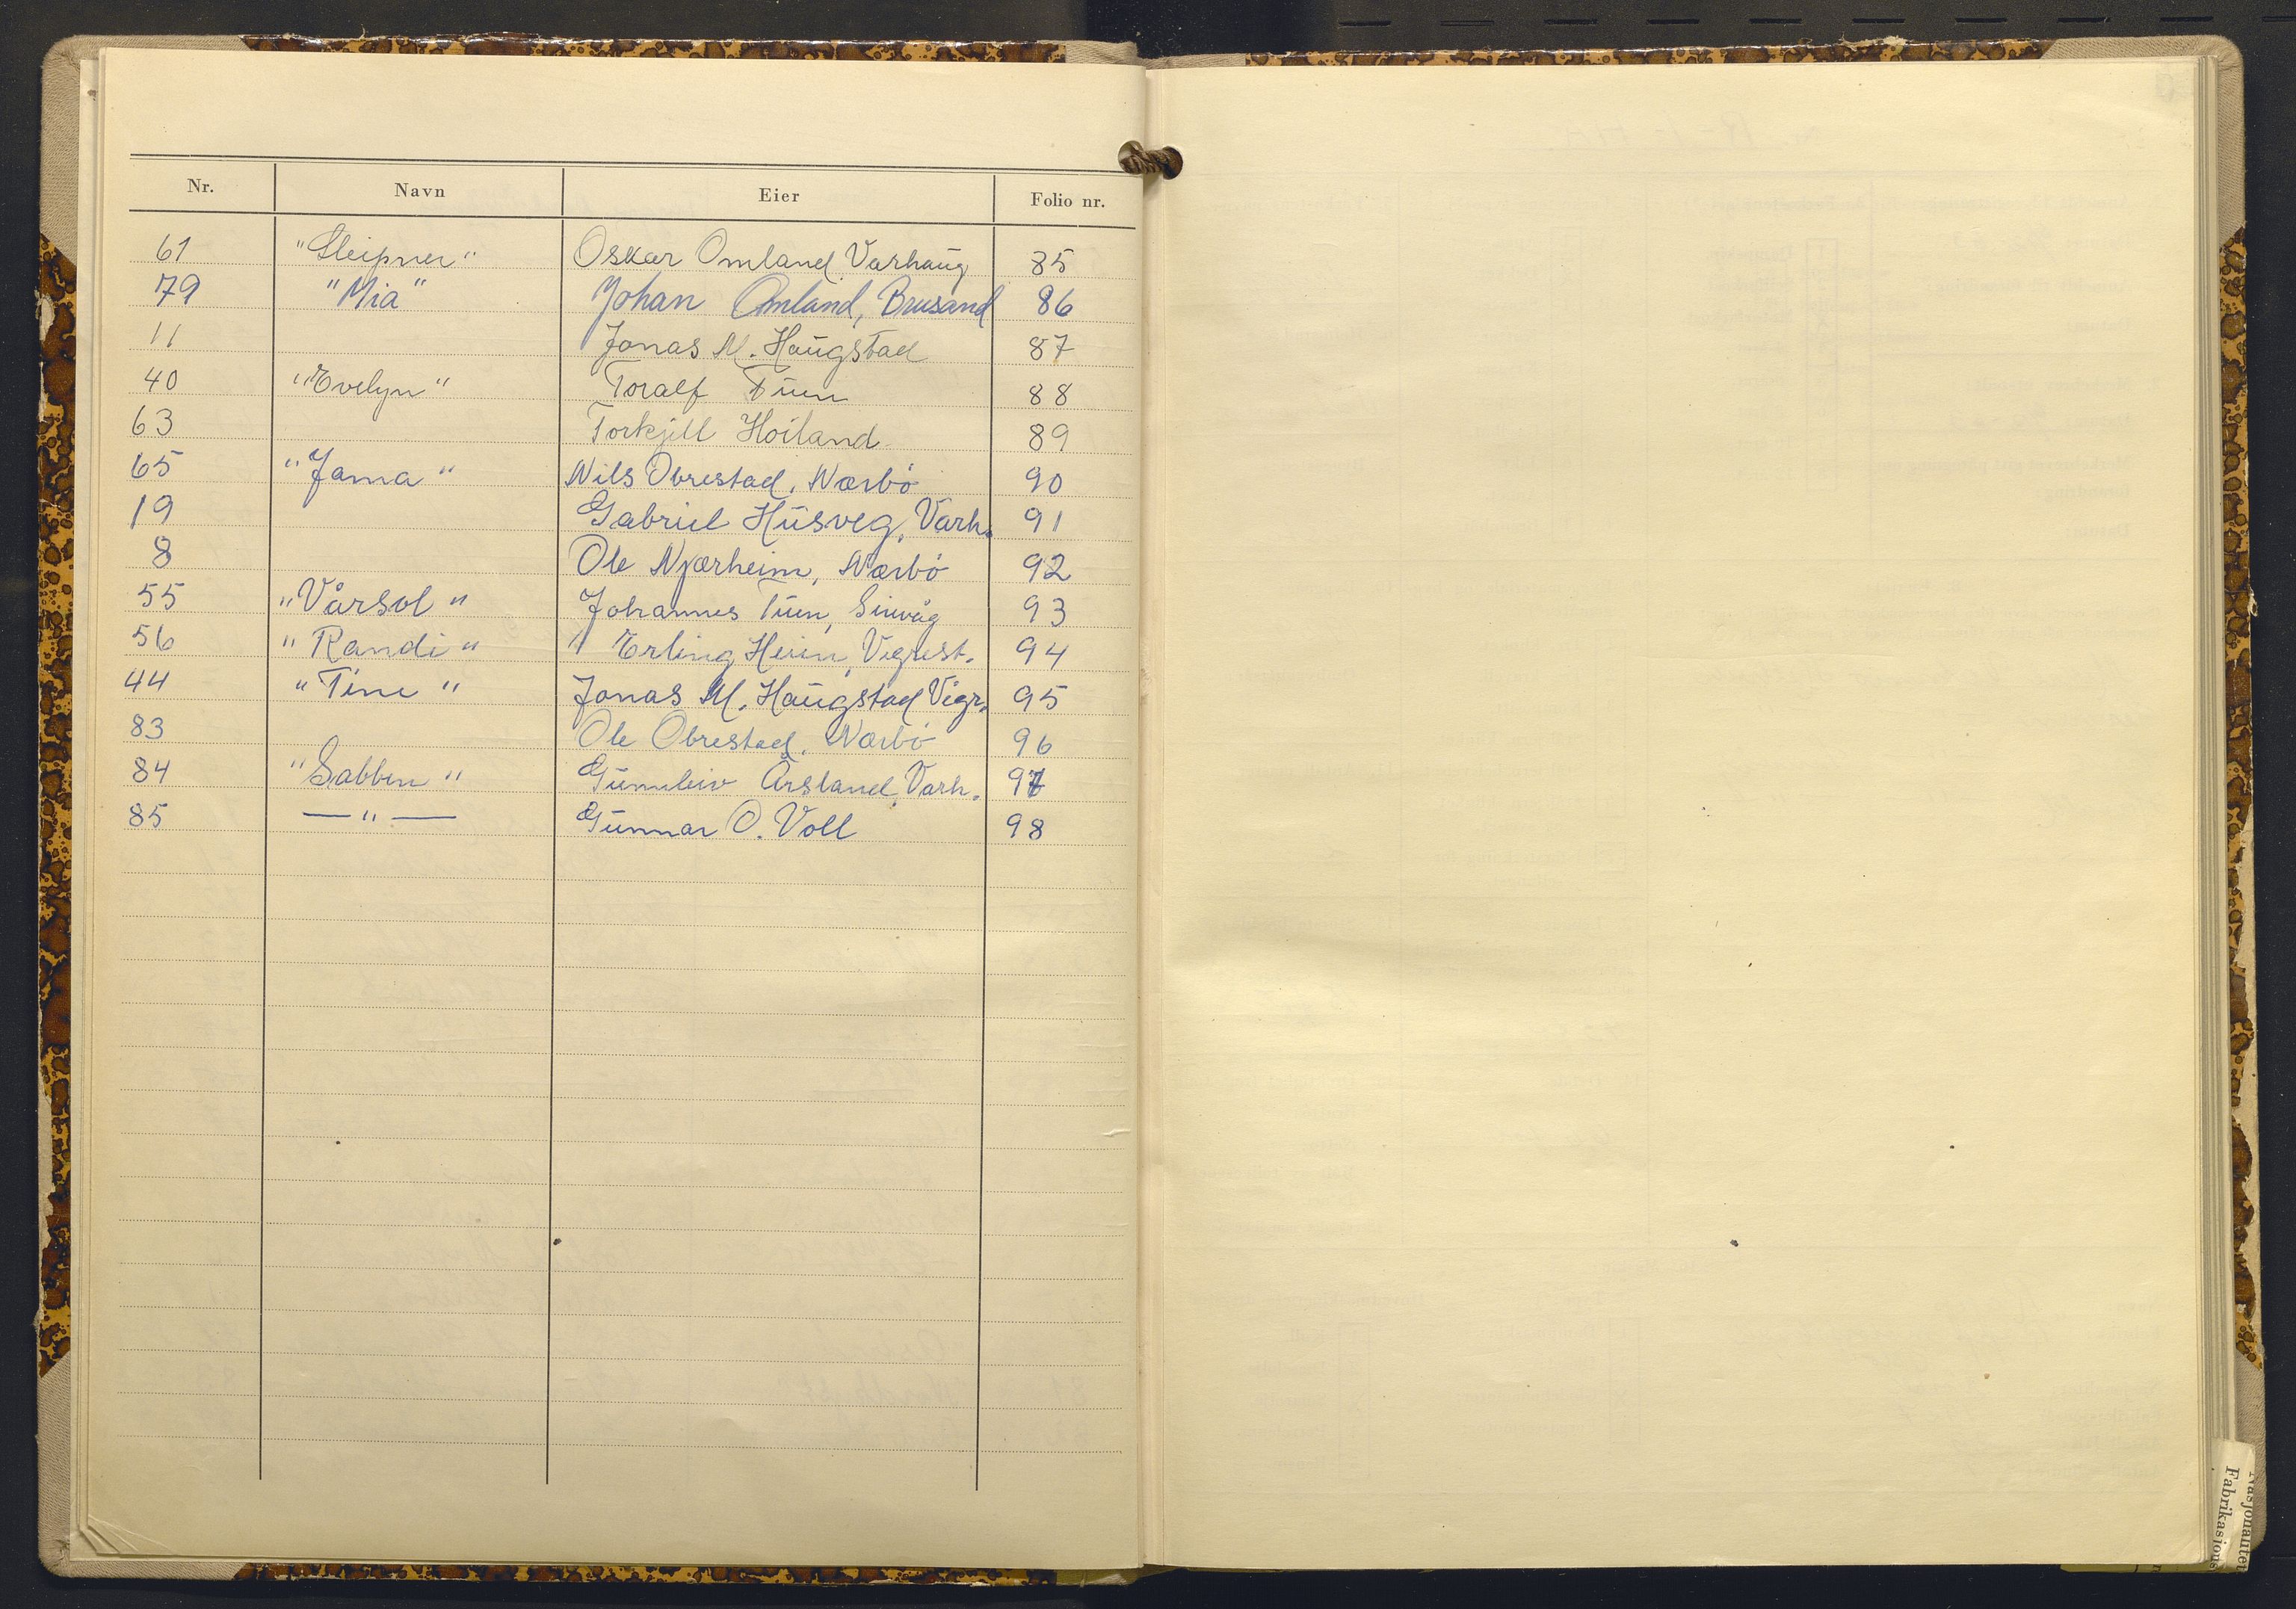 Nr. Navn Eier Folio nr.
61 "Sleipner" Oskar Omland, Varhaug 85
79 "Mia" Johan Omland, Brusand 86
11 Jonas M. Haugstad 87
40 "Evelyn" Toralf Tuen 88
63 Torkjell Hoiland 89
65 "Jama" Nils Obrestad, Nærbö 90
19 Gabriel Husveg, Varh. 91
8 Ole Njærheim, Nærbö 92
55 "Vårsol" Johannes Tuen, Sirevåg 93
56 "Randi" Erling Heim, Vigrest. 94
44 "Tine" Jonas M. Haugstad Vigr. 95
83 Ole Obrestad, Nærbö 96
84 "Sabben" Gunnleiv Årsland, Varh. 97
85 — " — Gunnar O. Voll 98
Fabrikasjons